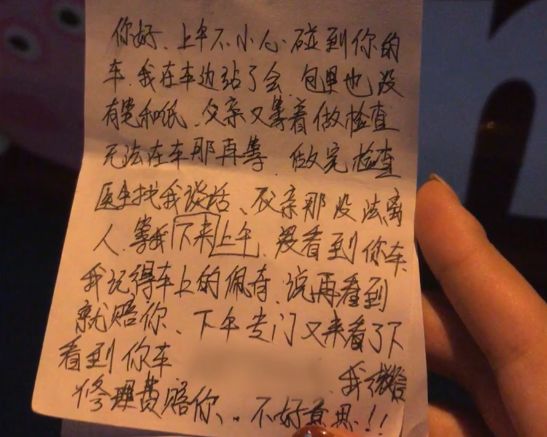 你好、上午不小心碰到你的
车.我在车边站了会.包里也没
有笔和纸.父亲又等着做检查
无法在车那再等.做完检查
医生找我谈话、父亲那没法离
人.等我下来上午.没看到你车
我记得车上的佩奇.说再看到
就赔你、下午专门又来看了下
看到你车
我微信
修理费赔你、.不好意思!!